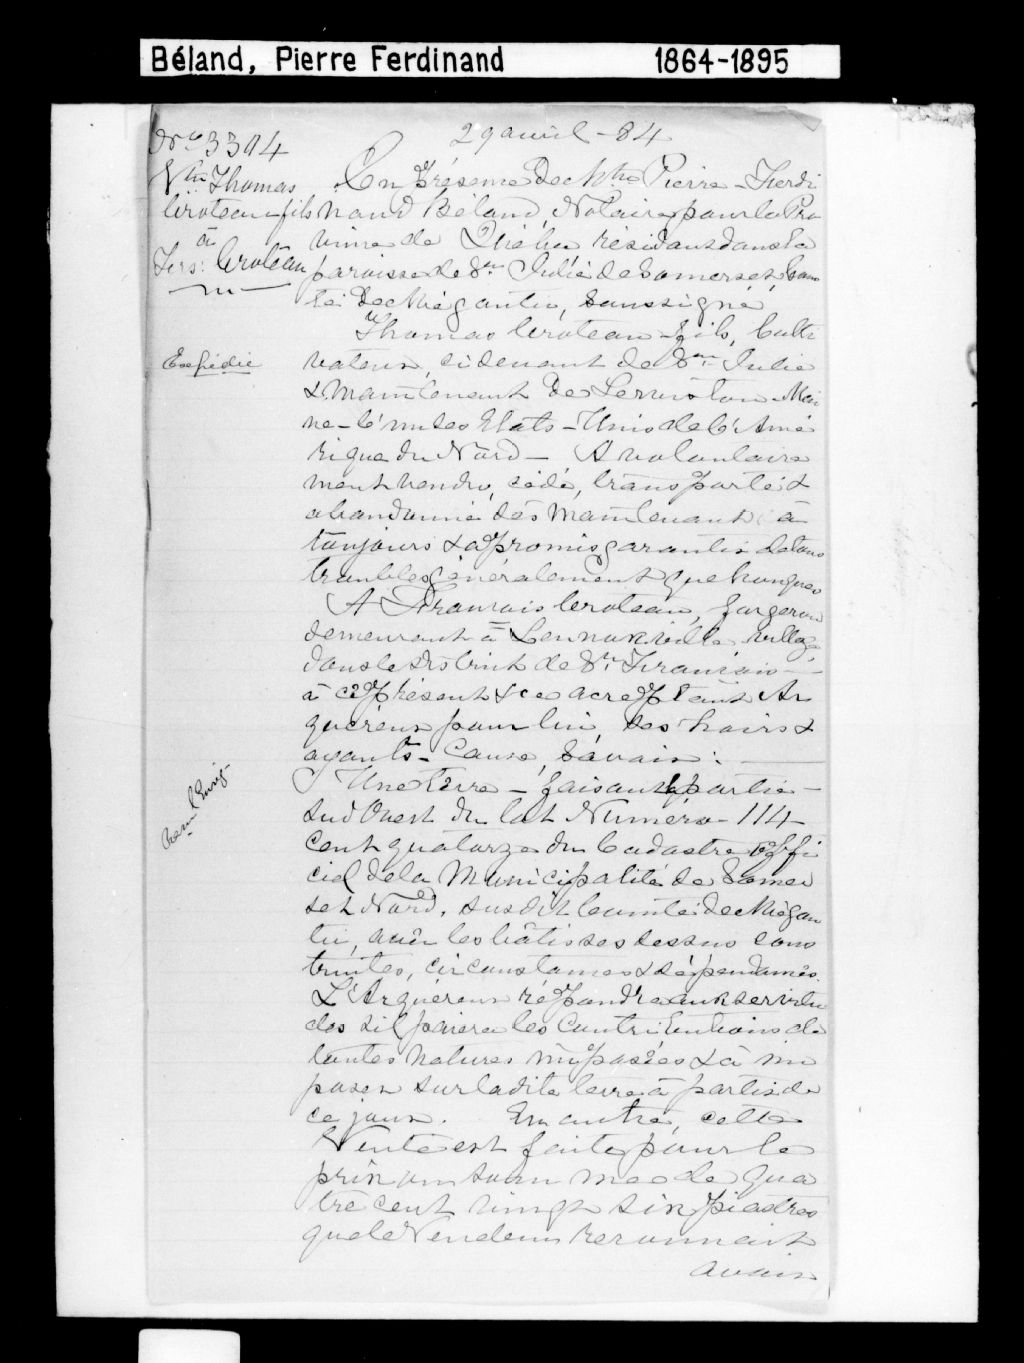 Béland, Pierre Ferdinand 1864-1895
29 avril - 84
No 3314
Vte Thomas
Croteau fils
à
Frs: Croteau
Expédié
En Présence de Mtre Pierre Ferdi
nand Béland, Notaire pour la Pro
vince de Québec résidant dans la
paroisse de Ste Julie de Somerset, Com
té de Mégantic, Soussigné,
Thomas Croteau fils, Culti
vateur, ci devant de Ste Julie
& Maintenant de Lewiston Mai
ne - l'un des Etats-Unis de l'Amé
rique du Nord - A volontaire
ment vendu, cédé, transporté &
abandonné dès Maintenant à
toujours & a promis garantir de tous
troubles généralement quelconques
A François Croteau, forgeron
demeurant à Lennoxville village
dans le District de St. François -
à ce présent & ce acceptant Ac
quéreur pour lui, ses hoirs &
ayants-Cause, Savoir:
Une Terre - faisant partie -
Sud Ouest du lot Numéro - 114
Cent quatorze du Cadastre offi
ciel de la Municipalité de Somer
set Nord, susdit Comté de Mégan
tic, avec les bâtisses dessus cons
truites, circonstances & dépendances.
L'Acquéreur répondra aux servitu
des & il paiera les Contributions de
toutes natures imposées & à im
poser sur la dite terre à partir de
ce jour. En outre, cette
Vente est faite pour le
prix ou somme de qua
tre cent vingt six piastres
que le Vendeur reconnait
avoir